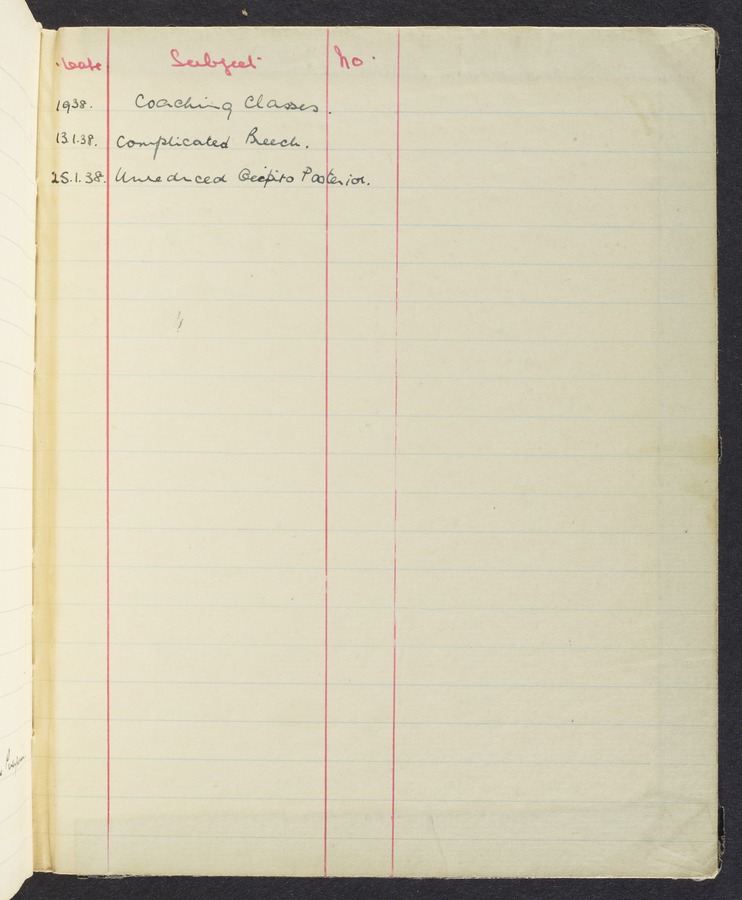 Date Subject No.
1938. Coaching Classes.
13.1.38. Complicated Breech.
25.1.38. Unreduced Occipito Posterior.